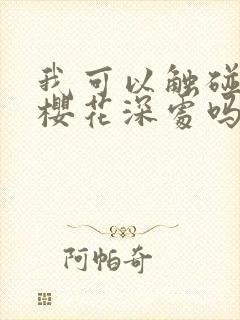 我可以触碰
樱花深处吗
阿帕奇